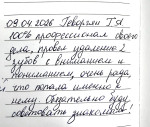 09.04.2026 Геворгян Т.А
100% профессионал своего
дела, провел удаление 2
зубов с вниманием и
пониманием, очень рада
что попала именно к
нему. Обязательно буду
советовать знакомым!